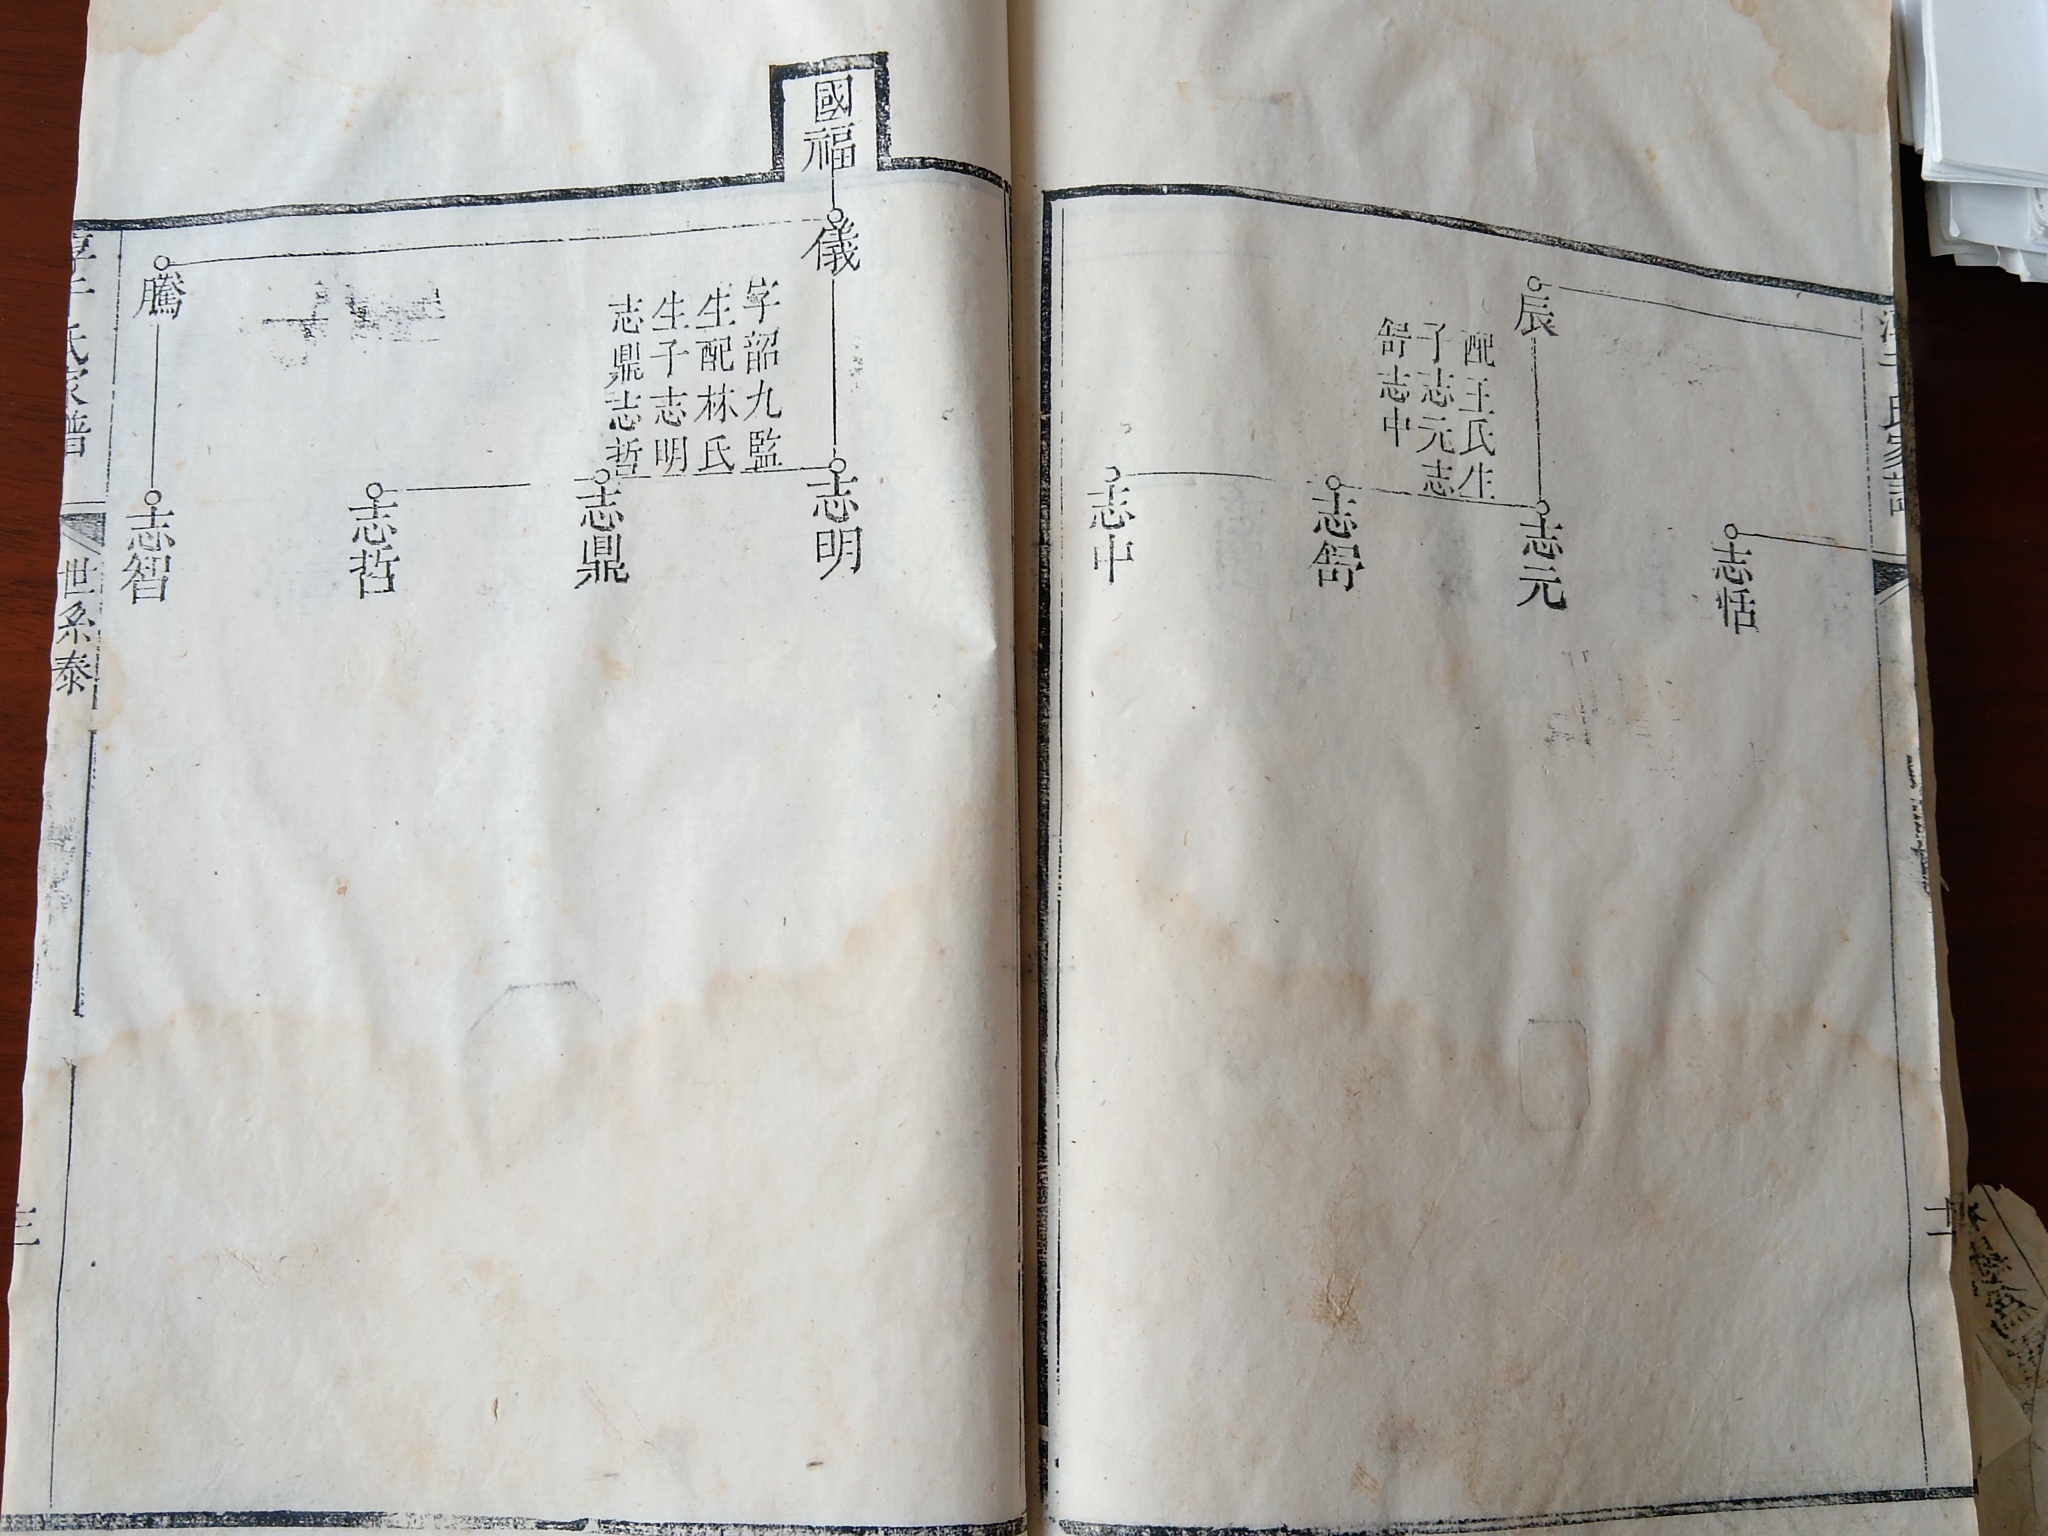 氏家譜
志恬
辰
配王氏生
子志元志
喾志中
志元
志喾
志中
國福
儀
字韶九監
生配林氏
生子志明
志鼎志哲
志明
志鼎
志哲
騰
志智
淳于氏家譜
世系泰
三